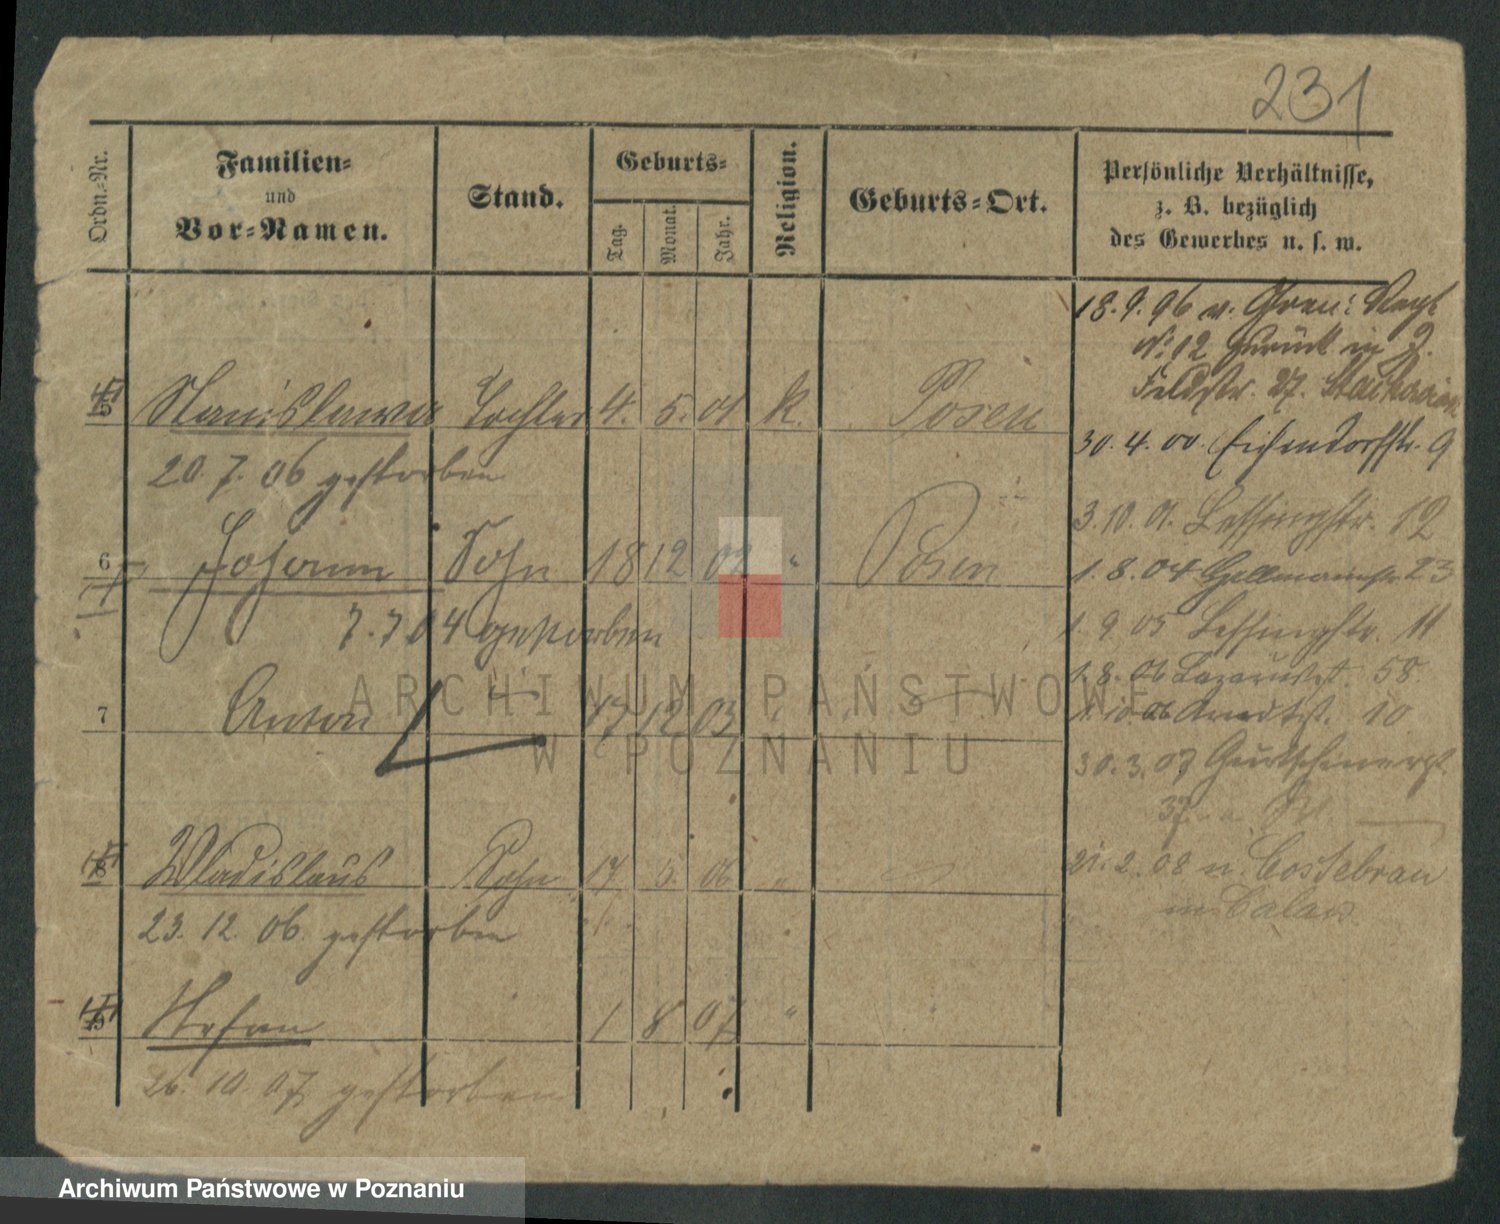 231
Ordn.-Nr.
Familien-
und
Vor-Namen.
Stand.
Geburts-
Tag.
Monat.
Jahr.
Religion.
Geburts-Ort.
Persönliche Verhältnisse,
z. B. bezüglich
des Gewerbes u. s. w.
18. 9. 96 v. Gren: Regt
No 12 zurück in
Feldstr. 27.
5 Stanislawa Tochter 4. 5. 01 k. Posen
30. 4. 00. Eichendorffstr. 9
20. 7. 06 gestorben
3. 10. 01. Lessingstr. 12
6 Johann Sohn 18 12 02 " Posen
1. 8. 04 Hellmannstr. 23
7. 7 04 gestorben
1. 9 05 Lessingstr. 11
1. 8. 06 Lazarusst. 58
7 Anton 17 12 03 "
1. 10 06 Arndtst. 10
30. 3. 07 Gurtschinerst.
37.
8 Wladislaus Sohn 17 5. 06 "
21. 2. 08 n. Costebrau
in Calau
23. 12. 06. gestorben
9 Stefan 1 8 07 "
26. 10. 07 gestorben
ARCHIWUM PAŃSTWOWE
W POZNANIU
Archiwum Państwowe w Poznaniu